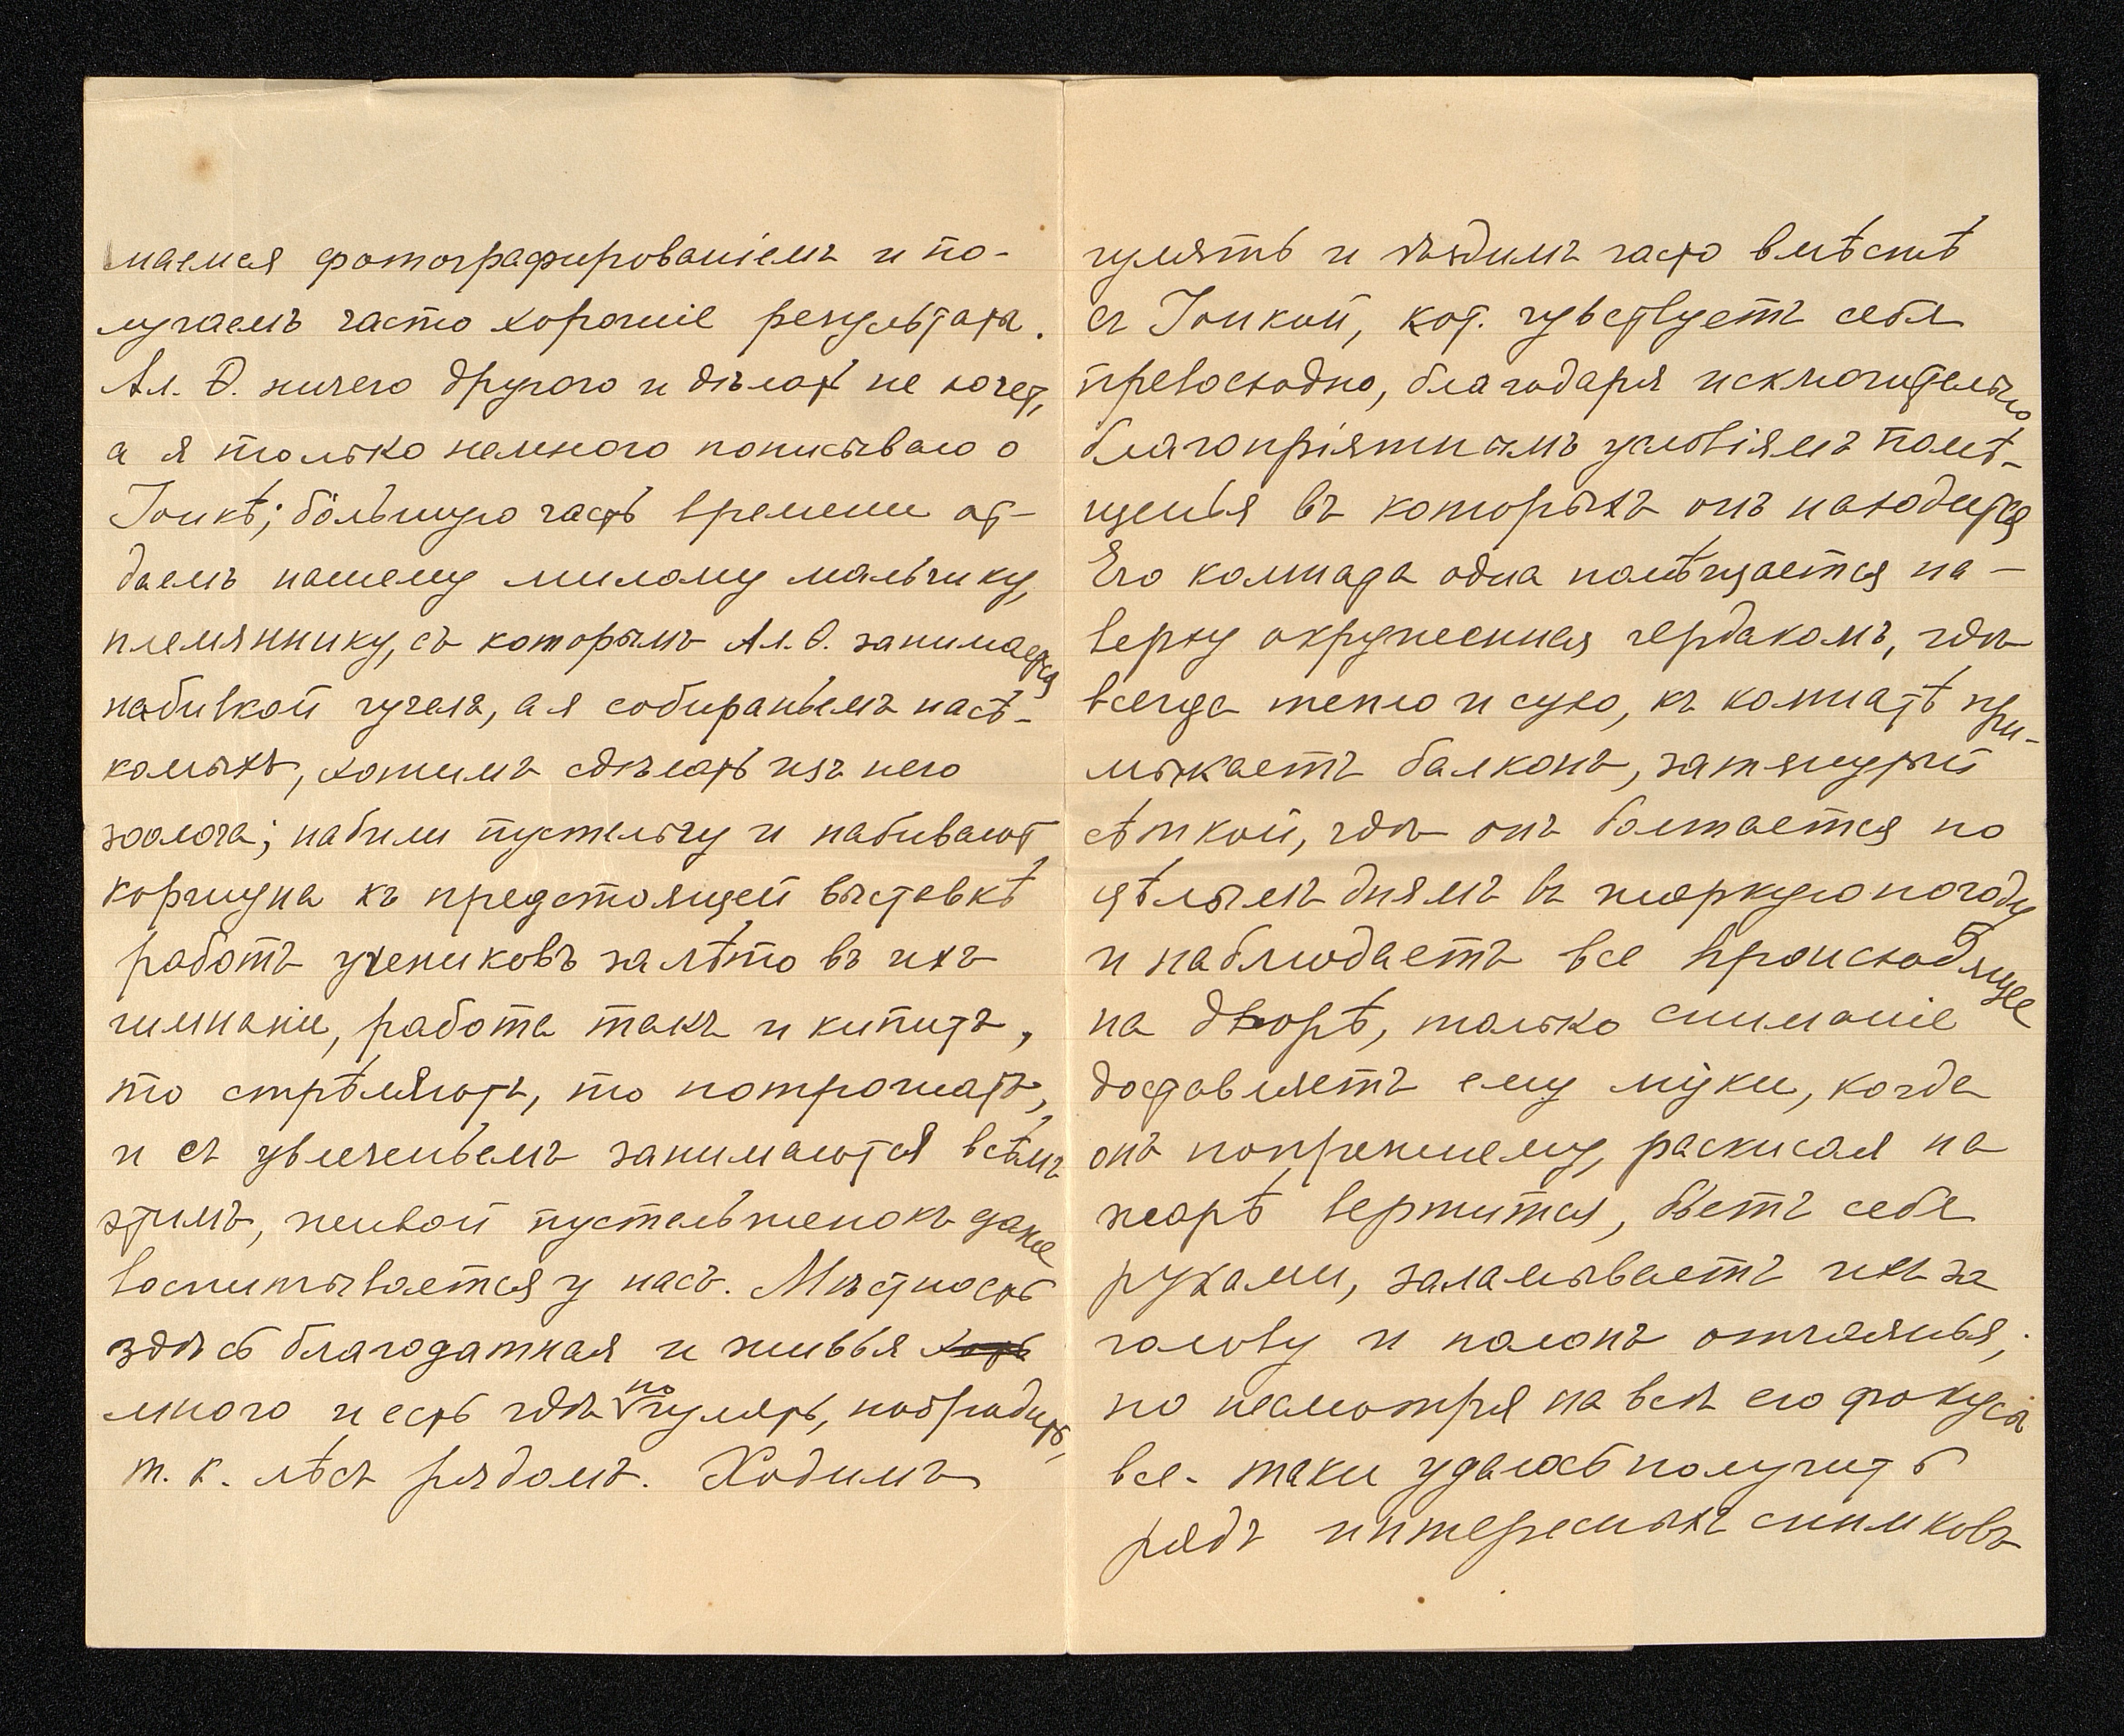 маемся фотографированіемъ и по-
лучаемъ часто хорошіе результата.
Ал. Ѳ. ничего другого и дѣлат не хочет,
а я только немного пописываю о
Іоикѣ; бо́льшую часть времени от-
даемъ нашему милому мальчику,
племяннику, съ которымъ Ал. Ѳ. занимается
набивкой чучелъ, а я собираньемъ насѣ-
комыхъ, хотимъ сдѣлать изъ него
зоолога; набили пустельгу и набивают
коршуна къ предстоящей выставкѣ
работъ учениковъ за лѣто въ ихъ
гимназіи, работа такъ и кипитъ,
то стрѣляютъ, то потрошатъ,
и съ увлеченьемъ занимаются всѣмъ
этимъ, живой пустельженокъ даже
воспитывается у насъ. Мѣстность
здѣсь благодатная и живья
много и есть гдѣ погулять, побродить,
т. к. лѣсъ рядомъ. Ходимъ
гулять и ѣздимъ часто вмѣстѣ
съ Іоикой, кот. чувствуетъ себя
превосходно, благодаря исключительно
благопріятнымъ условіямъ помѣ-
щенья въ которыхъ онъ находится
Его комната одна помѣщается на-
верху окруженная чердакомъ, гдѣ
всегда тепло и сухо, къ комнатѣ при-
мыкаетъ балконъ, затянутый
сѣткой, гдѣ онъ болтается по
цѣлымъ днямъ въ жаркую погоду
и наблюдаетъ все происходящее
на дворѣ, только сниманіе
доставляетъ ему му́ки, когда
онъ попрежнему, раскисая на
жарѣ вертится, бьетъ себя
руками, заламываетъ ихъ за
голову и полонъ отчаянья,
но несмотря на всѣ его фокусы
все-таки удалось получить
рядъ интересныхъ снимковъ